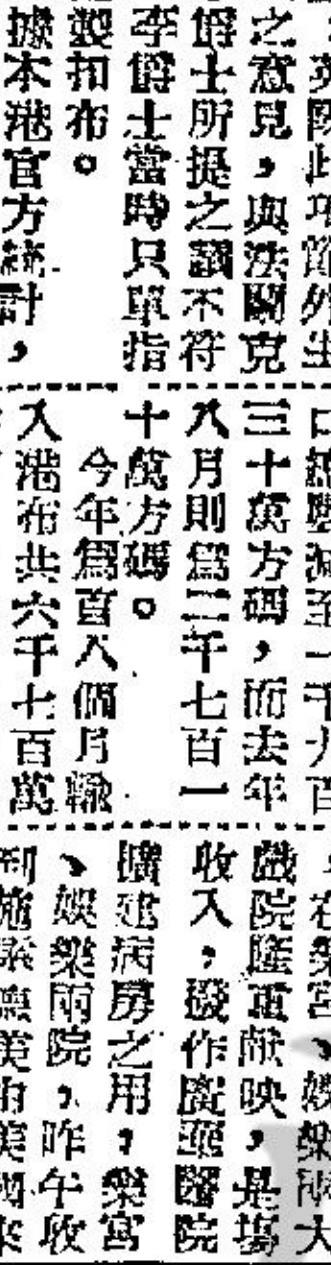 英除此項節外生
之意見，與法關克
爵士所提之議不符
李爵士當時只單指
製扣布。
據本港官方統計，
口總壓減至一千九百
三十萬方碼，而去年
八月則爲二千七百一
十萬方碼。
今年爲首八個月輸
入港布共六千七百萬
在樂宮、娛樂兩大
戲院隆重献映，是塲
收入，撥作廣華醫院
擴建病房之用，樂宮
、娛樂兩院，昨午收
到施素德美由美國來